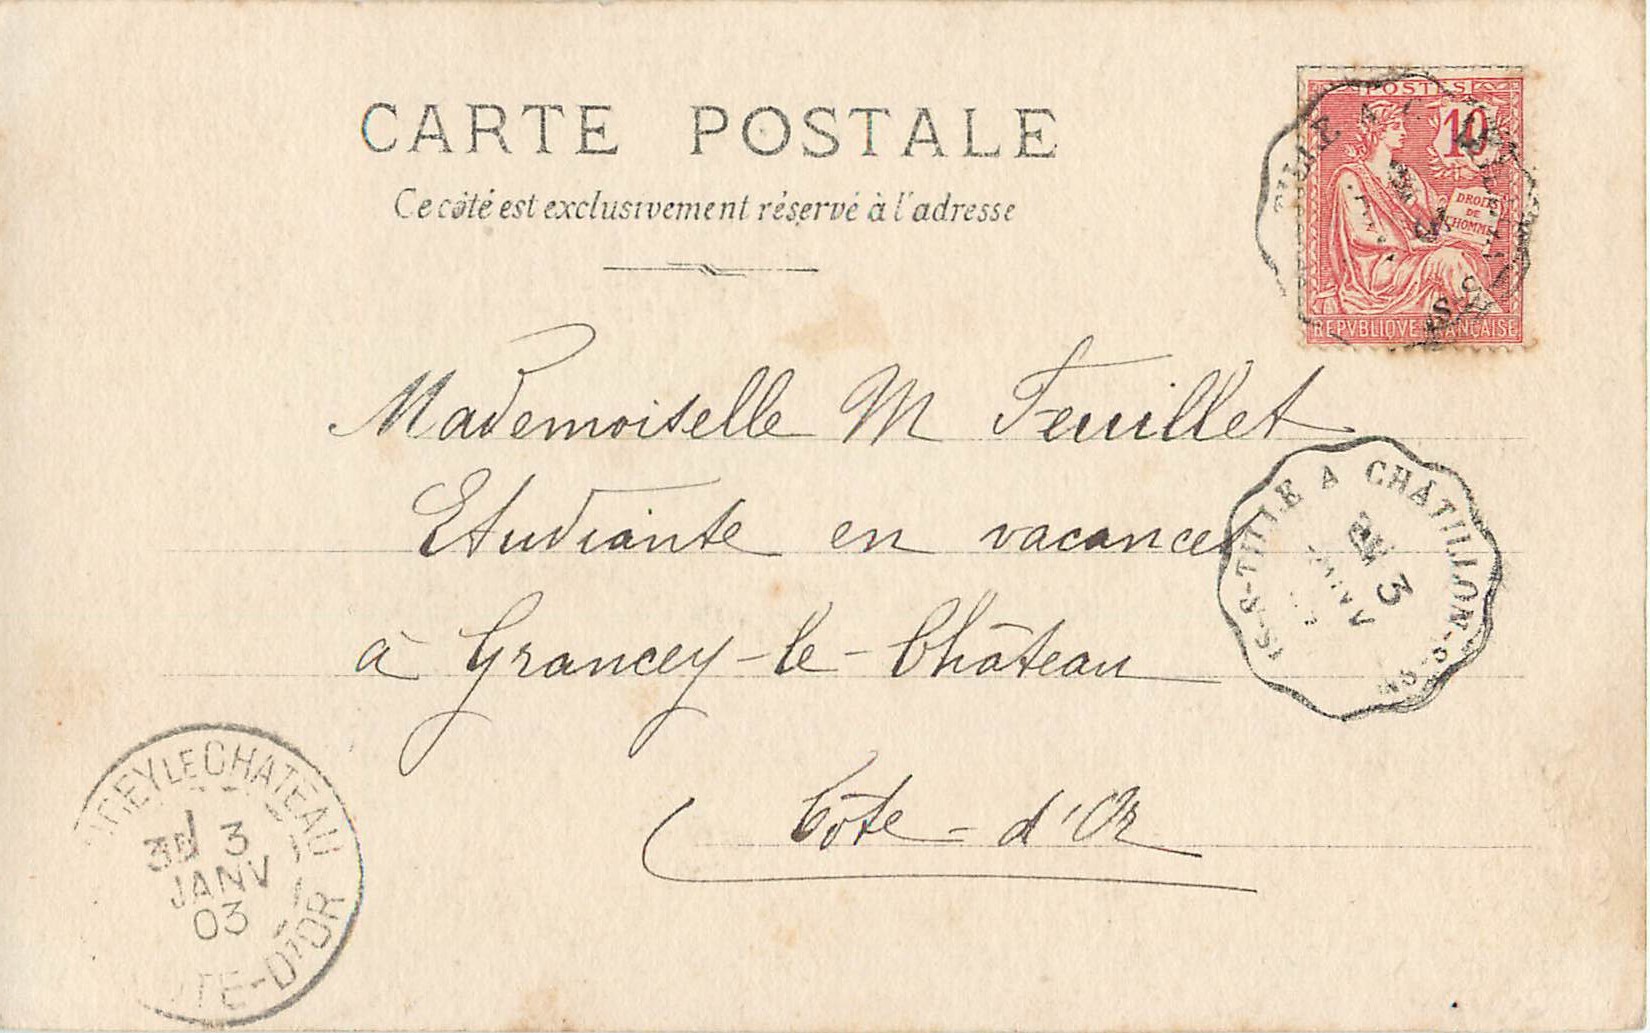 CARTE POSTALE
Ce côté est exclusivement réservé à l'adresse
POSTES
10
DROITS
DE
L'HOMME
REPVBLIQVE FRANÇAISE
Mademoiselle M Feuillet
Etudiante en vacances
à Grancey-le-Château
Côte-d'Or
IS-S-TILLE A CHATILLON-S-S
3
JANV
CEY LE CHATEAU
3E 3
JANV
03
TE-D'OR